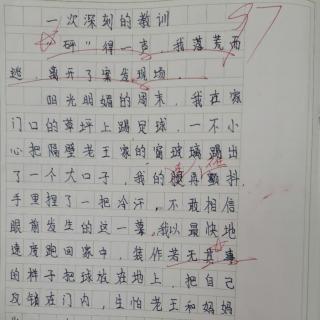 一次深刻的教训
“砰”得一声，我落荒而
逃，离开了案发现场。
阳光明媚的周末，我在家
门口的草坪上踢足球，一不小
心把隔壁老王家的窗玻璃踢出
了一个大口子，我的腿再颤抖，
手里捏了一把冷汗，不敢相信
眼前发生的这一幕，我以最快地
速度跑回家中，装作若无其事
的样子把球放在地上，把自己
反锁在门内，生怕老王和妈妈